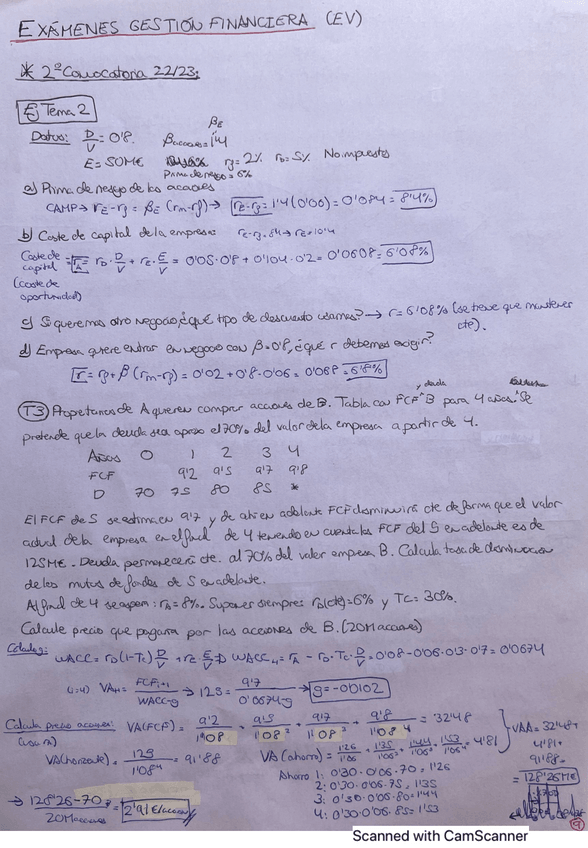 EXÁMENES GESTIÓN FINANCIERA (EV)
* 2ª Convocatoria 22/23:
Ej Tema 2
Datos: D/V = 0'8. βacciones = 1'4 βE
E = 50M€ rf = 2% rD = 5% No impuestos
Prima de riesgo = 6%
a) Prima de riesgo de las acciones
CAMP → rE - rf = βE (rm - rf) → rE - rf = 1'4 (0'06) = 0'084 = 8'4%
b) Coste de capital de la empresa: rE - rf = 8'4 → rE = 10'4
Coste de capital = rA = rD · D/V + rE · E/V = 0'05 · 0'8 + 0'104 · 0'2 = 0'0608 = 6'08%
(coste de oportunidad)
c) Si queremos otro negocio, ¿qué tipo de descuento usamos? → r = 6'08% (se tiene que mantener cte).
d) Empresa quiere entrar en negocio con β = 0'8, ¿qué r debemos exigir?
r = rf + β (rm - rf) = 0'02 + 0'8 · 0'06 = 0'068 = 6'8%
T3 Propietarios de A quieren comprar acciones de B. Tabla con FCF y deuda B para 4 años. Se
pretende que la deuda sea aprox el 70% del valor de la empresa a partir de 4.
Años 0 1 2 3 4
FCF 9'2 9'5 9'7 9'8
D 70 75 80 85 *
El FCF de 5 se estima en 9'7 y de ahí en adelante FCF disminuirá cte de forma que el valor
actual de la empresa en el final de 4 teniendo en cuenta los FCF del 5 en adelante es de
125M€. Deuda permanecerá cte. al 70% del valor empresa B. Calcula tasa de disminución
de los flujos de fondos de 5 en adelante.
Al final de 4 se espera: rA = 8%. Suponer siempre: rD(cte) = 6% y TC = 30%.
Calcule precio que pagaría por las acciones de B. (20M acciones)
WACC = rD (1 - Tc) D/V + rE · E/V → WACC4 = rA - rD · Tc · D/V = 0'08 - 0'06 · 0'3 · 0'7 = 0'0674
(i=4) VA4 = FCFi+1 / WACC - g → 125 = 9'7 / 0'0674 - g → g = -0'0102
Calcula precio acciones: VA(FCF) = 9'2/1'08 + 9'5/1'08² + 9'7/1'08³ + 9'8/1'08⁴ = 32'48
VA(horizonte) = 125/1'08⁴ = 91'88 VA(ahorro) = 1'26/1'06 + 1'35/1'06² + 1'44/1'06³ + 1'53/1'06⁴ = 4'81
VAA = 32'48 + 4'81 + 91'88 = 128'26M€
Ahorro 1: 0'30 · 0'06 · 70 = 1'26
2: 0'30 · 0'06 · 75 = 1'35
3: 0'30 · 0'06 · 80 = 1'44
4: 0'30 · 0'06 · 85 = 1'53
→ 128'26 - 70 / 20M acciones = 2'91 €/acción
Scanned with CamScanner